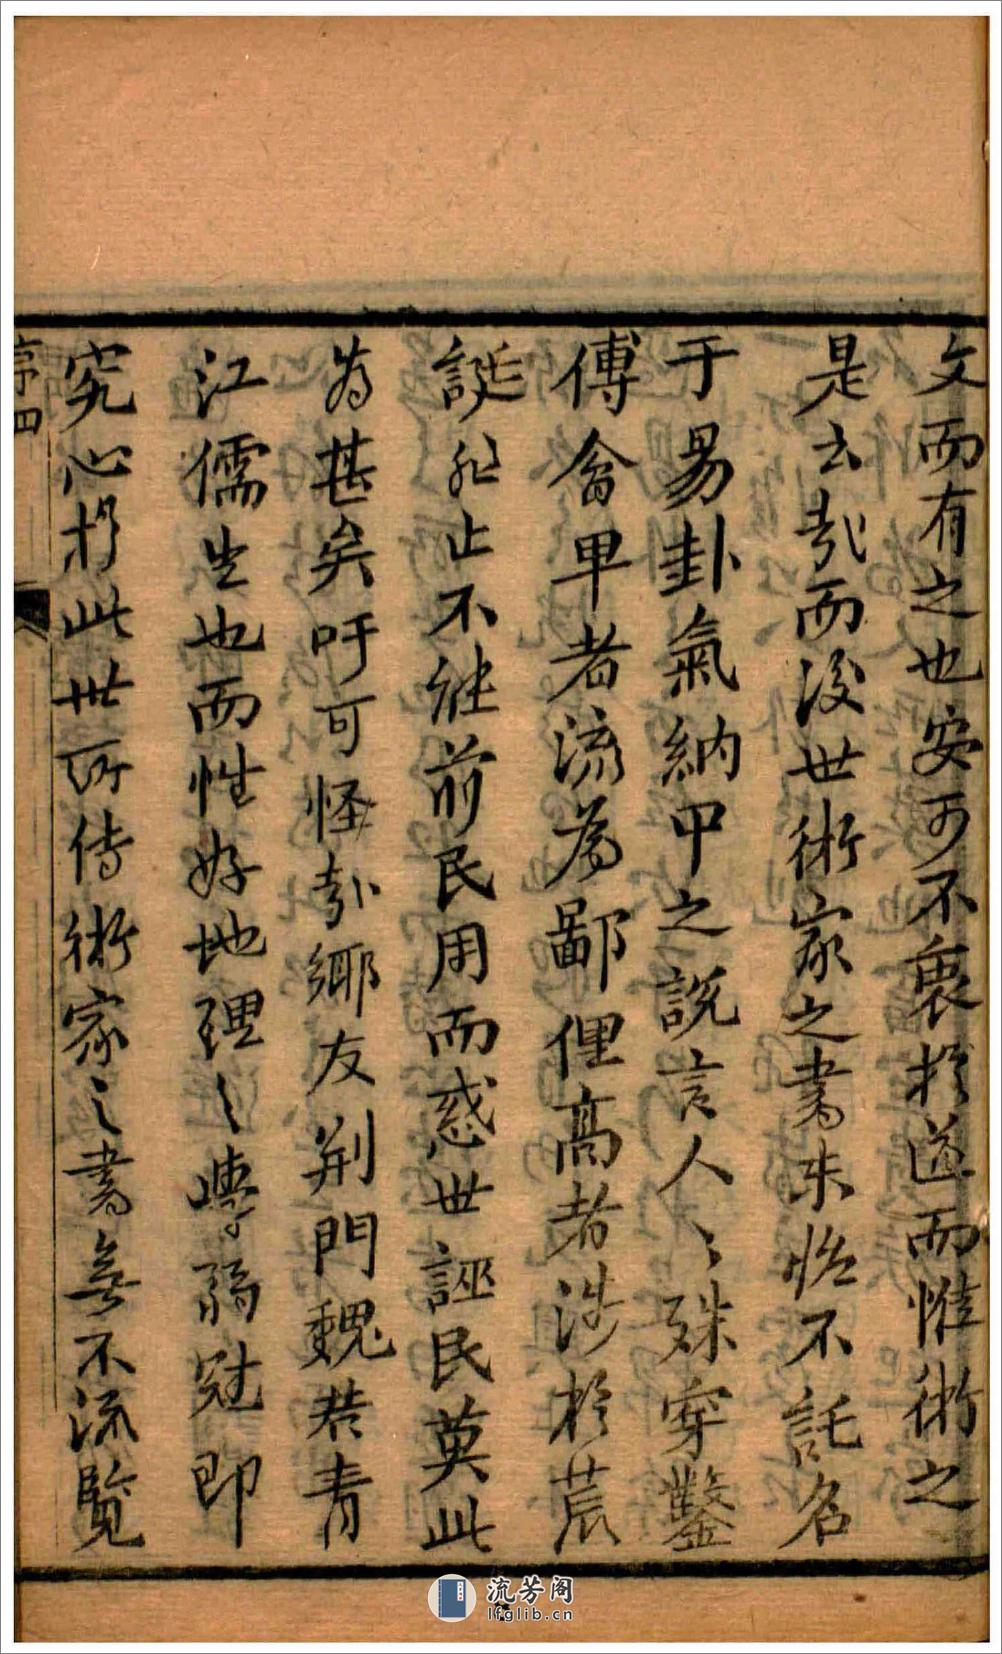 文而有之也安可不衷扵道而惟術之
是去哉而後世術家之書未始不託名
于易卦氣納甲之說言人〻殊穿鑿
傅會卑者流為鄙俚高者涉於荒
誕非止不能前民用而惑世誣民莫此
為甚矣吁可怪哉鄉友荆門魏君青
江儒生也而性好地理之學弱冠即
究心於此世所傳術家之書無不流覽
序四
流芳阁
lfglib.cn